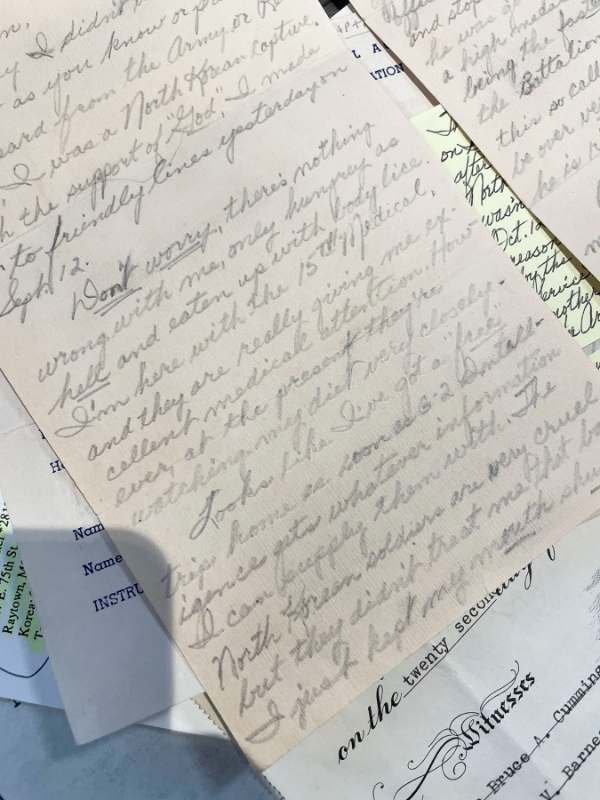 I didn't
as you know or
heard from the Army or
I was a North Korean captive.
the support of "God," I made
to friendly lines yesterday on
Sept. 12.
Don't worry, there's nothing
wrong with me, only hungrey as
hell and eaten up with body lice
I'm here with the 15th Medical,
and they are really giving me ex-
cellent medical attention. How-
ever, at the present they're
watching my diet very closely.
Looks like I've got a "free
trip" home as soon as G-2 Intell-
igence gets whatever information
I can supply them with. The
North Korean soldiers are very cruel
but they didn't treat me that ba
I just kept my mouth shu
and stop
he was
a high
being the fast
the Battalion
this so call
be over
he is
on
after
North
wasn't
Oct. 12
reason
by the
service
mother
L A
ATION
Nam
Name
INSTRU
E. 75th St
Raytown, M
Korea
on the twenty second
Witnesses
Bruce A. Cumming
V. Barne